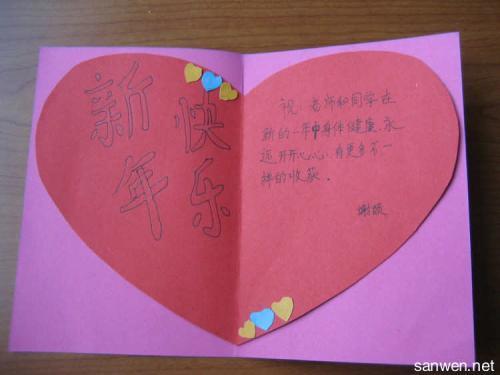 新年
快乐
祝：老师和同学在
新的一年中身体健康，永
远开开心心，有更多不一
样的收获．
sanwen.net